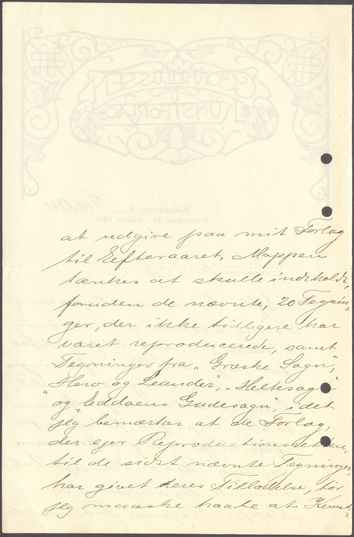 at udgive paa mit Forlag
til Efteraaret. Mappen
tænkes at skulle indeholde,
foruden de nævnte, 20 Tegnin=
ger, der ikke tidligere har
været reproducerede, samt
Tegninger fra „Græske Sagn",
„Hero og Leander", „Heltesagn"
og „Eddaens Gudesagn", idet
jeg bemærker at de Forlag,
der ejer Reproduktionsretten
til de sidst nævnte Tegninger
har givet deres Tilladelse, tør
jeg maaske haabe at